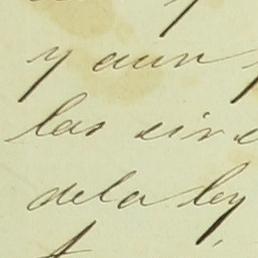 y aun
las circ
de la ley